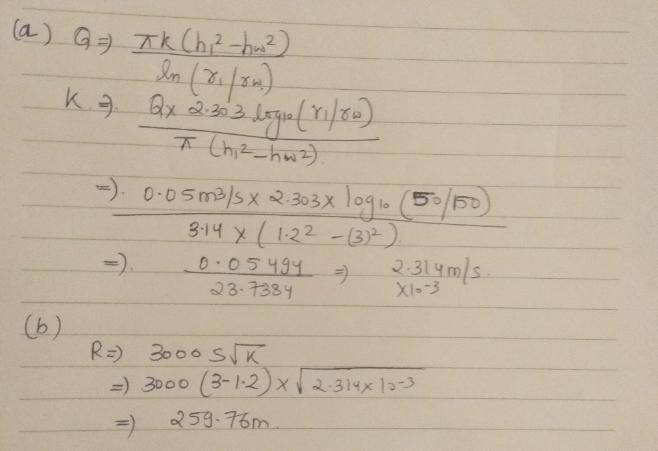 (a) Q ⇒ πk(h₁² - hw²)
ln (r₁/rw)
K ⇒. Q x 2.303 log₁₀(r₁/rw)
π (h₁² - hw²).
⇒). 0.05 m3/s x 2.303 x log₁₀ (50/150)
3.14 x (1.2² - (3)²).
⇒). 0.05494 ⇒) 2.314 m/s.
23.7384 x10-3
(b)
R ⇒) 3000 S√K
⇒) 3000 (3-1.2) x √2.314 x 10-3
⇒) 259.76m.